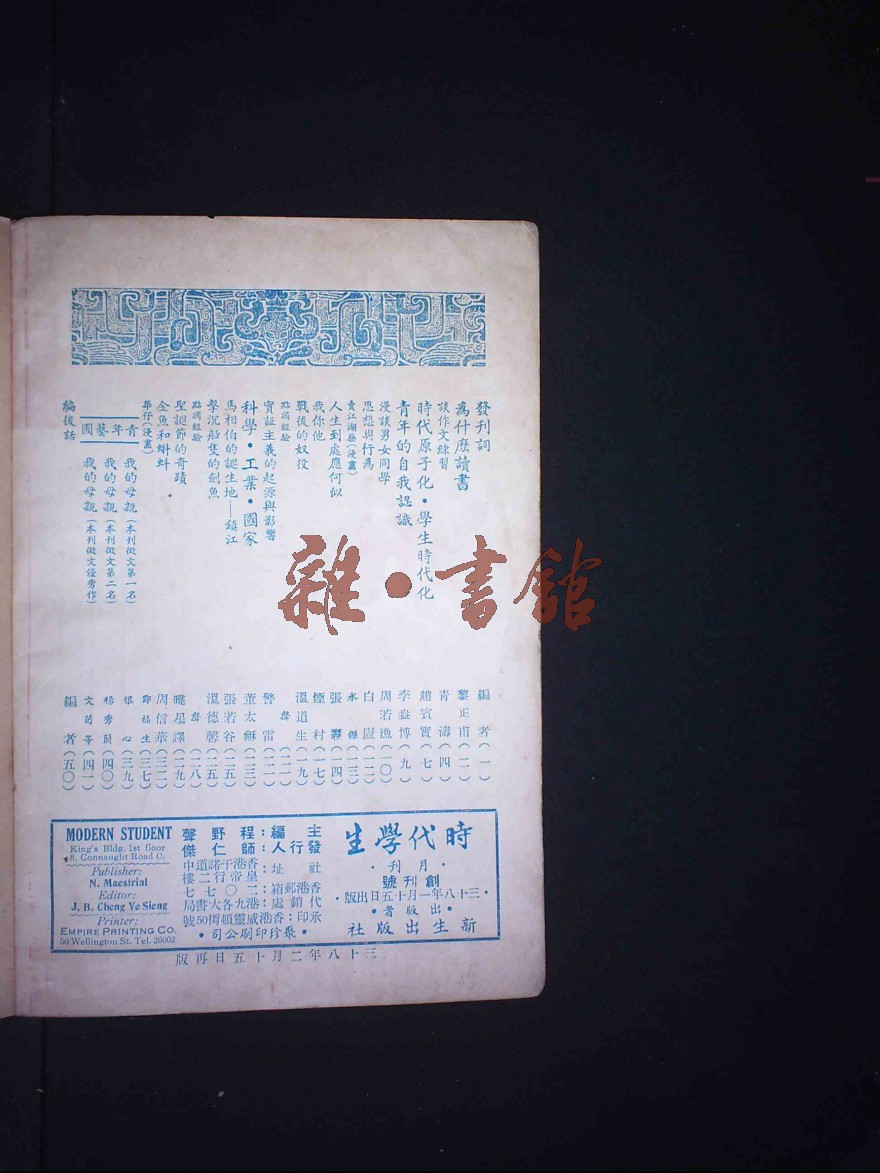 發刊詞
為什麽讀書
談作文練習
時代原子化·學生時代化
青年的自我認識
漫談男女同學
思想與行為
賣江湖藥(漫畫)
人生到處應何似
我你他
戰後的奴役
點滴經驗
實証主義的起源與影響
科學·工業·國家
馬相伯的誕生地——鎮江
擊沉船隻的劍魚
點滴經驗
聖誕節的奇蹟
金魚和蝌蚪
華仔(漫畫)
青年藝園
我的母親(本刊徵文第一名)
我的母親(本刊徵文第二名)
我的母親(本刊徵文優秀作)
編後話
編者(一)
黎正甫(二)
青濤(四)
趙賓實(七)
李益博(九)
周若漁(一〇)
白廬(一二)
永傑(一三)
張(一四)
煙村(一七)
溫道生(一九)
聲(二一)
警雷(二一)
董太龢(二三)
張若谷(二五)
溫德馨(二五)
聲(二八)
曉星譯(二九)
周信華(三二)
鄧福生(三七)
心(三九)
楊秀蘭(四〇)
文茵等(四一)
編者(五〇)
時代學生
·月刊·
創刊號
·三十八年一月十五日出版·
·出版者·
新生出版社
主編:程野聲
發行人:師仁傑
社址:香港干諾道中皇帝行二樓
香港郵箱:二〇七七
代銷處:港九各大書局
承印:香港威靈頓街50號
·聚珍印刷公司·
MODERN STUDENT
King's Bldg. 1st floor
8, Connaught Road C.
Publisher:
N. Maestrini
Editor:
J. B. Cheng Ye Sieng
Printer:
EMPIRE PRINTING CO.
50 Wellington St. Tel. 26002
三十八年二月十五日再版
雜·書館